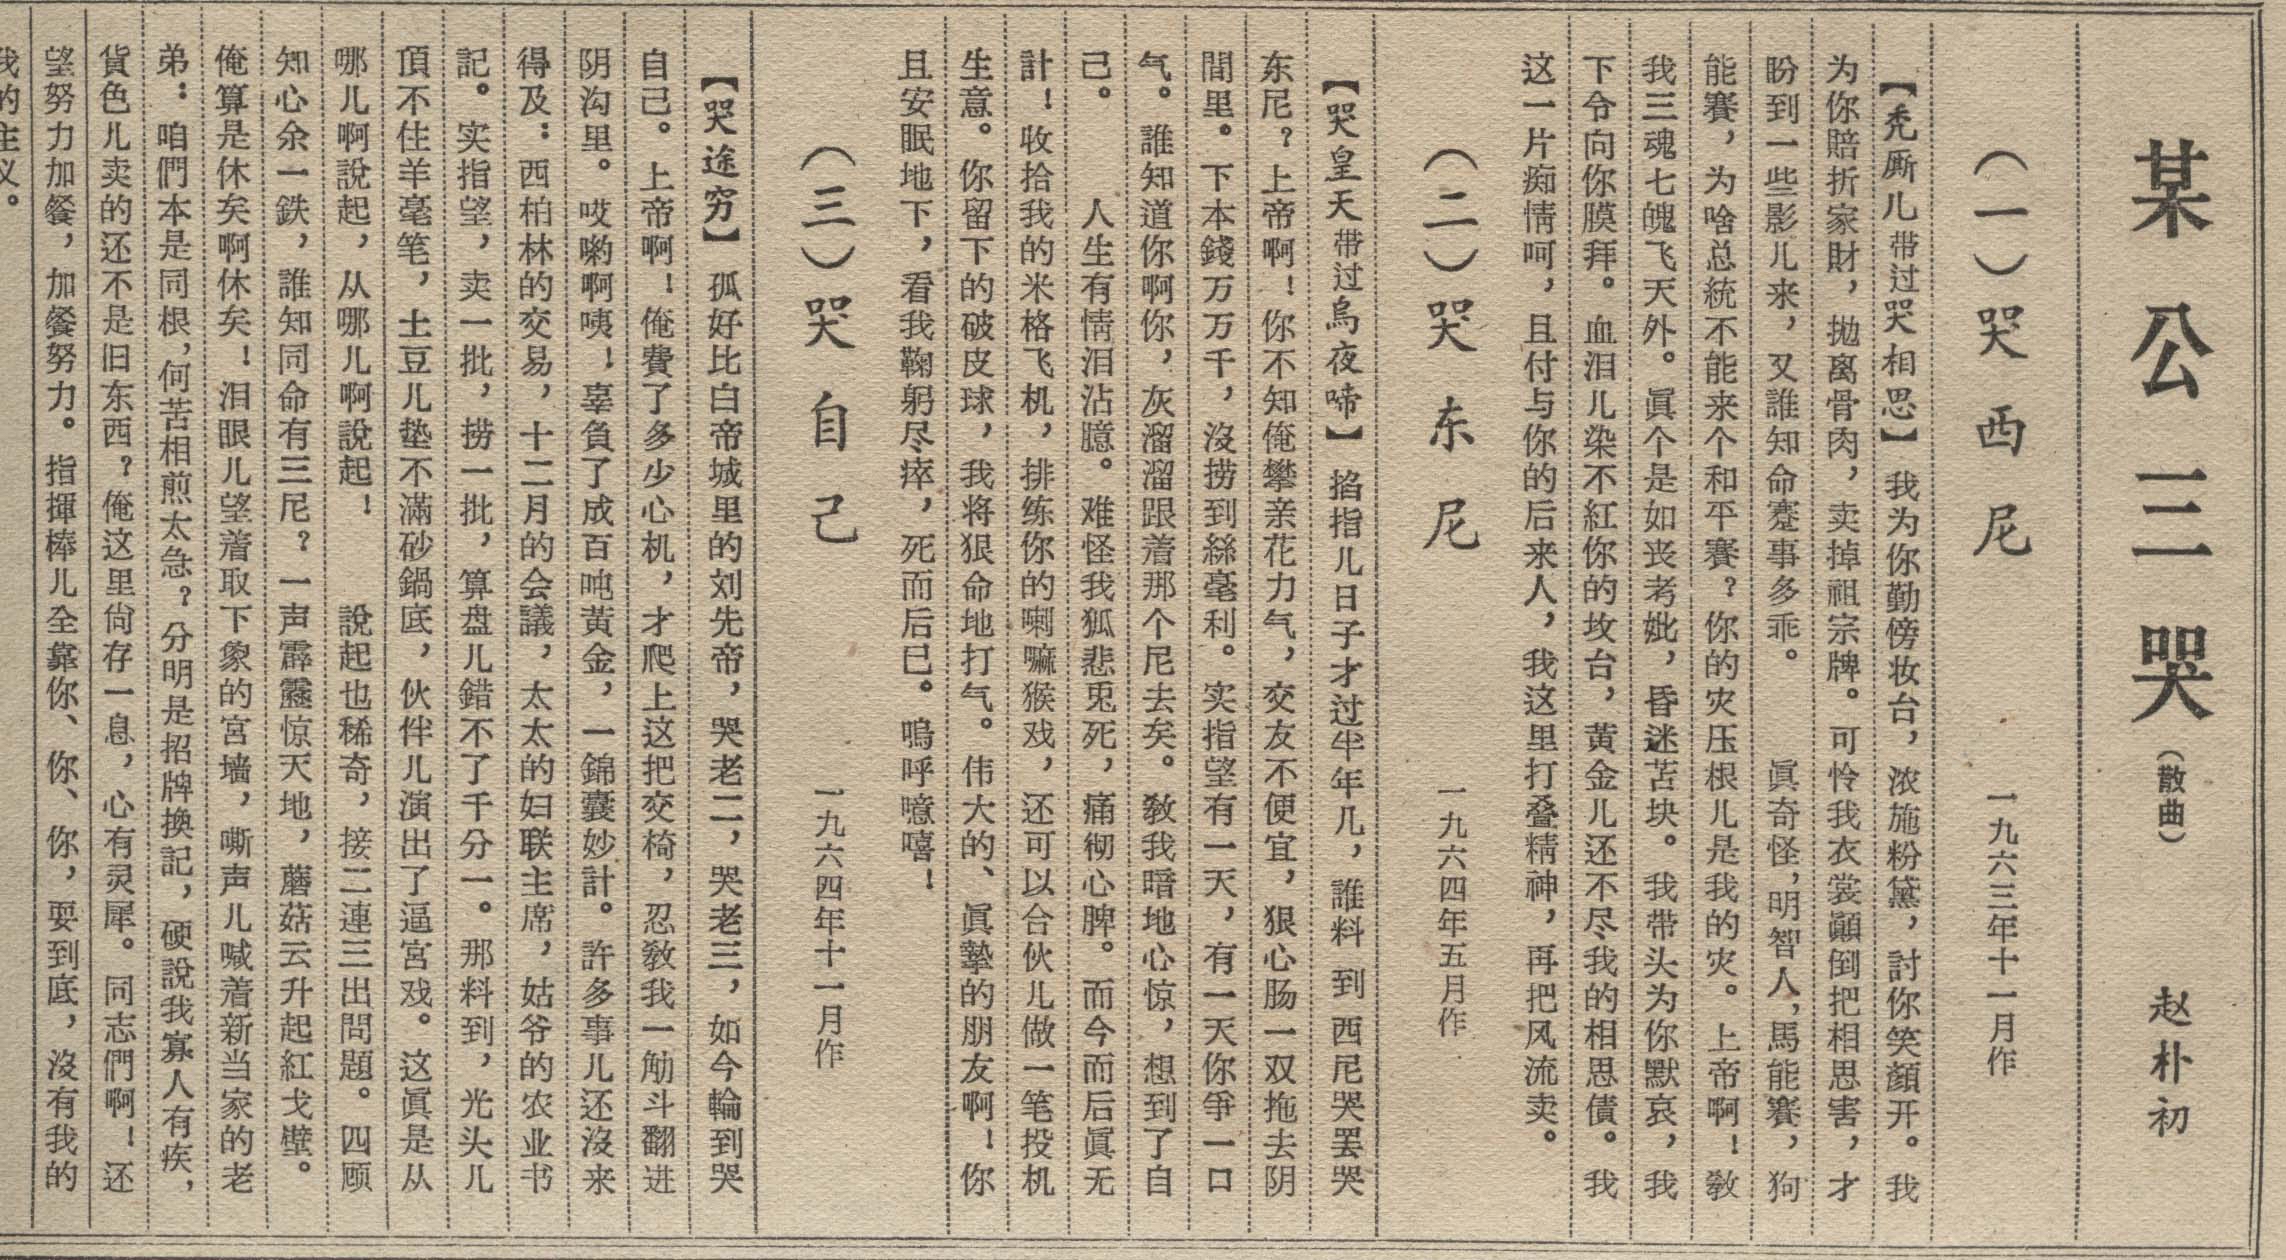 某公三哭（散曲）　赵朴初
（一）哭西尼　一九六三年十一月作
【秃厮儿带过哭相思】我为你勤傍妆台，浓施粉黛，討你笑顏开。我
为你賠折家財，拋离骨肉，卖掉祖宗牌。可怜我衣裳顚倒把相思害，才
盼到一些影儿来，又誰知命蹇事多乖。　眞奇怪，明智人，馬能賽，狗
能賽，为啥总統不能来个和平賽？你的灾压根儿是我的灾。上帝啊！敎
我三魂七魄飞天外。眞个是如丧考妣，昏迷苫块。我带头为你默哀，我
下令向你膜拜。血泪儿染不紅你的坟台，黄金儿还不尽我的相思債。我
这一片痴情呵，且付与你的后来人，我这里打叠精神，再把风流卖。
（二）哭东尼　一九六四年五月作
【哭皇天带过烏夜啼】掐指儿日子才过半年几，誰料到西尼哭罢哭
东尼？上帝啊！你不知俺攀亲花力气，交友不便宜，狠心肠一双拖去阴
間里。下本錢万万千，沒捞到絲毫利。实指望有一天，有一天你爭一口
气。誰知道你啊你，灰溜溜跟着那个尼去矣。敎我暗地心惊，想到了自
己。　人生有情泪沾臆。难怪我狐悲兎死，痛彻心脾。而今而后眞无
計！收拾我的米格飞机，排练你的喇嘛猴戏，还可以合伙儿做一笔投机
生意。你留下的破皮球，我将狠命地打气。伟大的、眞摯的朋友啊！你
且安眠地下，看我鞠躬尽瘁，死而后已。嗚呼噫嘻！
（三）哭自己　一九六四年十一月作
【哭途穷】孤好比白帝城里的刘先帝，哭老二，哭老三，如今輪到哭
自己。上帝啊！俺費了多少心机，才爬上这把交椅，忍敎我一觔斗翻进
阴沟里。哎喲啊咦！辜負了成百吨黃金，一錦囊妙計。許多事儿还沒来
得及：西柏林的交易，十二月的会議，太太的妇联主席，姑爷的农业书
記。实指望，卖一批，捞一批，算盘儿錯不了千分一。那料到，光头儿
頂不住羊毫笔，土豆儿垫不滿砂鍋底，伙伴儿演出了逼宮戏。这眞是从
哪儿啊說起，从哪儿啊說起！　說起也稀奇，接二連三出問題。四顾
知心余一鉄，誰知同命有三尼？一声霹靂惊天地，蘑菇云升起紅戈壁。
俺算是休矣啊休矣！泪眼儿望着取下象的宮墙，嘶声儿喊着新当家的老
弟：咱們本是同根，何苦相煎太急？分明是招牌換記，硬說我寡人有疾，
貨色儿卖的还不是旧东西？俺这里尙存一息，心有灵犀。同志們啊！还
望努力加餐，加餐努力。指揮棒儿全靠你、你、你，耍到底，沒有我的
我的主义。